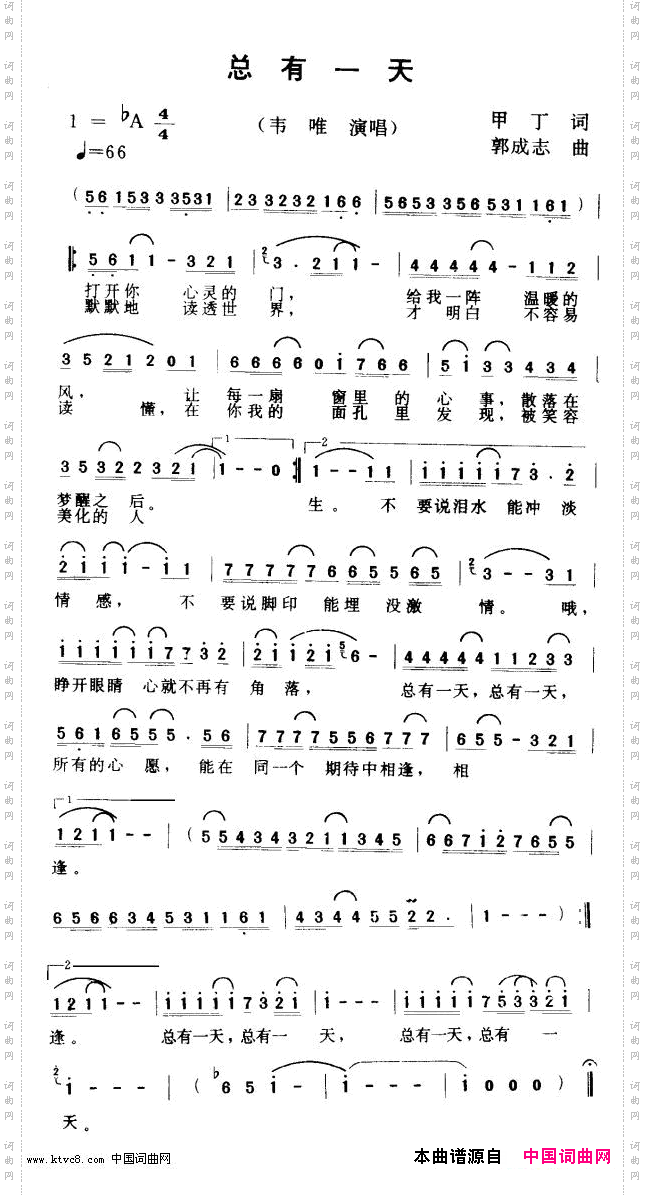 总有一天
1 = ♭A 4/4
♩=66
(韦唯 演唱)
甲丁 词
郭成志 曲
(5 6 1 5 3 3 3 5 3 1 | 2 3 3 2 3 2 1 6 6 | 5 6 5 3 3 5 6 5 3 1 1 6 1) |
5 6 1 1 - 3 2 1 | 3 · 2 1 1 - | 4 4 4 4 4 - 1 1 2 |
打开你 心灵的 门, 给我一阵 温暖的
默默地 读透世 界, 才 明白 不容易
3 5 2 1 2 0 1 | 6 6 6 6 6 0 1 7 6 6 | 5 1 3 3 4 3 4 |
风, 让 每一扇 窗里 的 心 事,散落在
读 懂,在 你我的 面孔 里 发 现,被笑容
3 3 5 3 2 2 3 2 1 | 1 - - 0 :‖ 1 - - 1 1 | 1 1 1 1 1 7 3 · 2 |
梦醒之 后。 生。 不 要说泪水 能冲 淡
美化的 人
2 1 1 1 - 1 1 | 7 7 7 7 7 6 6 5 5 6 5 | 3 - - 3 1 |
情 感, 不 要说脚印 能埋 没激 情。 哦,
1 1 1 1 1 1 7 7 3 2 | 2 1 1 2 1 6 - | 4 4 4 4 4 1 1 2 3 3 |
睁开眼睛 心就不再有 角 落, 总有一天,总有一天,
5 6 1 6 5 5 5 · 5 6 | 7 7 7 7 5 5 6 7 7 7 | 6 5 5 - 3 2 1 |
所有的心 愿, 能在 同一个 期待中相逢, 相
1
1 2 1 1 - - | (5 5 4 3 4 3 2 1 1 3 4 5 | 6 6 7 1 2 7 6 5 5 |
逢。
6 5 6 6 3 4 5 3 1 1 6 1 | 4 3 4 4 5 5 2 2 · | 1 - - - ) :‖
2
1 2 1 1 - - | 1 1 1 1 1 7 3 2 1 | 1 - - - | 1 1 1 1 1 7 5 3 3 2 1 |
逢。 总有一天,总有一 天, 总有一天,总有 一
1 - - - | (♭6 5 1 - | 1 - - - | 1 0 0 0) ‖
天。
www.ktvc8.com 中国词曲网
本曲谱源自 中国词曲网